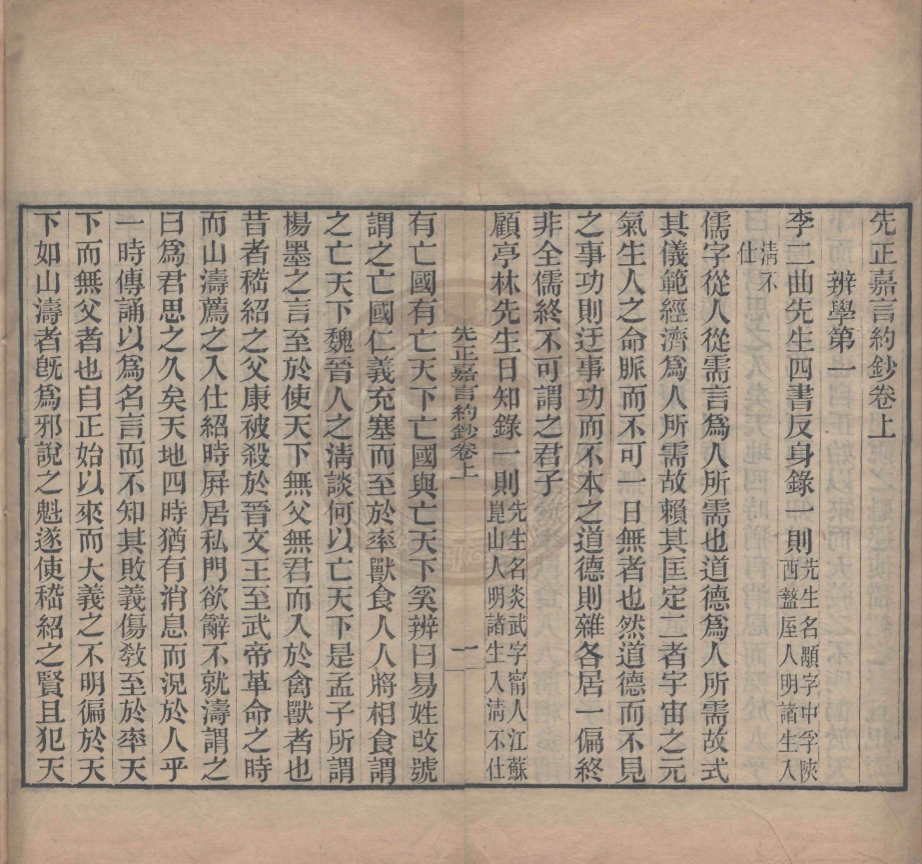 先正嘉言約鈔卷上
辨學第一
李二曲先生四書反身錄一則先生名顒字中孚陝西盩厔人明諸生入
清不仕
儒字從人從需言爲人所需也道德爲人所需故式
其儀範經濟爲人所需故賴其匡定二者宇宙之元
氣生人之命脈而不可一日無者也然道德而不見
之事功則迂事功而不本之道德則雜各居一偏終
非全儒終不可謂之君子
顧亭林先生日知錄一則先生名炎武字甯人江蘇崑山人明諸生入清不仕
先正嘉言約鈔卷上 一
有亡國有亡天下亡國與亡天下奚辨曰易姓改號
謂之亡國仁義充塞而至於率獸食人人將相食謂
之亡天下魏晉人之淸談何以亡天下是孟子所謂
楊墨之言至於使天下無父無君而入於禽獸者也
昔者嵇紹之父康被殺於晉文王至武帝革命之時
而山濤薦之入仕紹時屏居私門欲辭不就濤謂之
曰爲君思之久矣天地四時猶有消息而況於人乎
一時傳誦以爲名言而不知其敗義傷敎至於率天
下而無父者也自正始以來而大義之不明徧於天
下如山濤者旣爲邪說之魁遂使嵇紹之賢且犯天